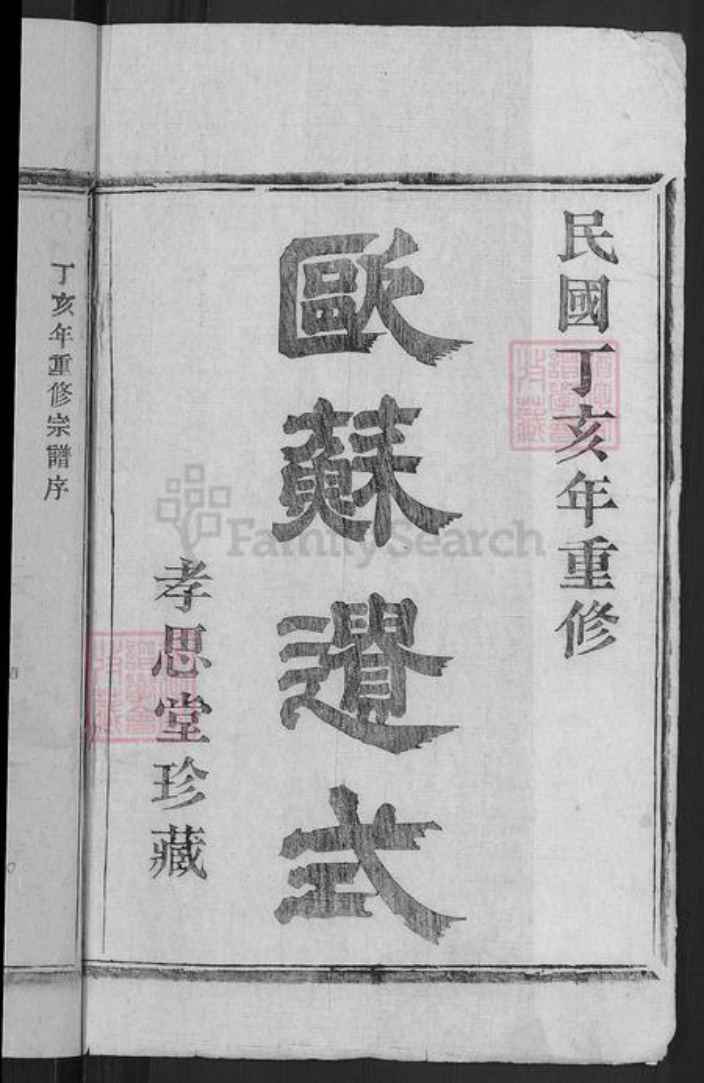 民國丁亥年重修
歐蘇遺式
孝思堂珍藏
丁亥年重修宗譜序
FamilySearch